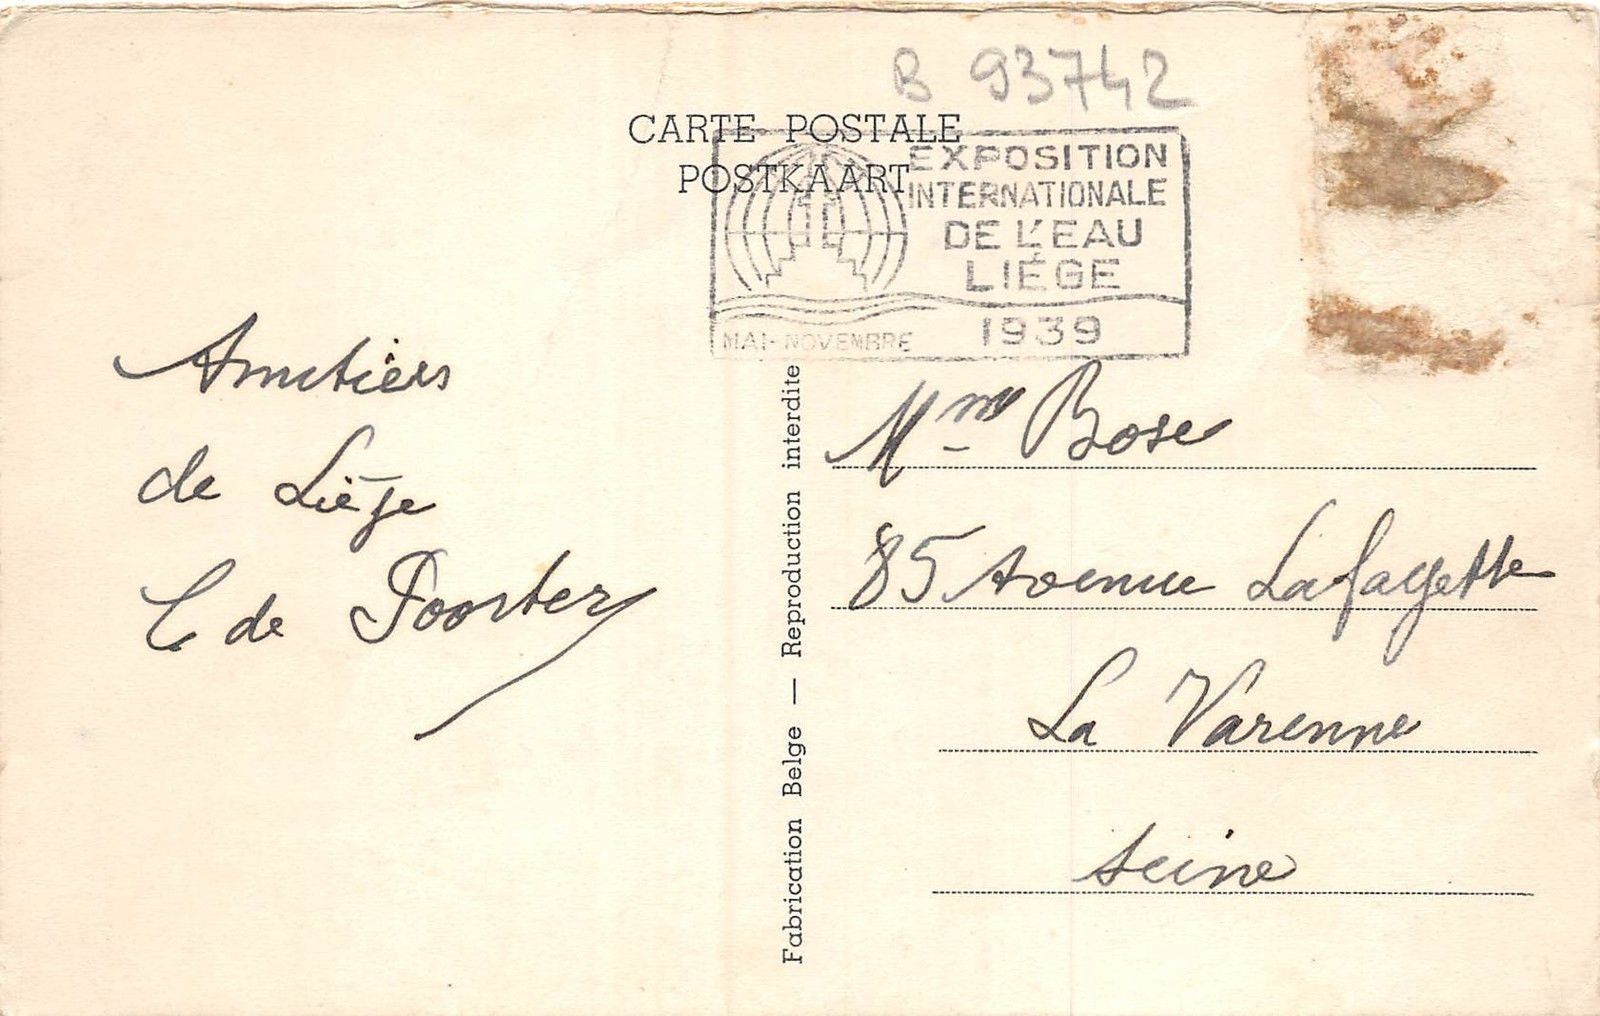 B 93742
CARTE POSTALE
POSTKAART
EXPOSITION
INTERNATIONALE
DE L'EAU
LIÉGE
1939
MAI-NOVEMBRE
Amitiers
de Liège
C de Poorter
Fabrication Belge — Reproduction interdite
Mme Bose
85 Avenue Lafayette
La Varenne
Seine